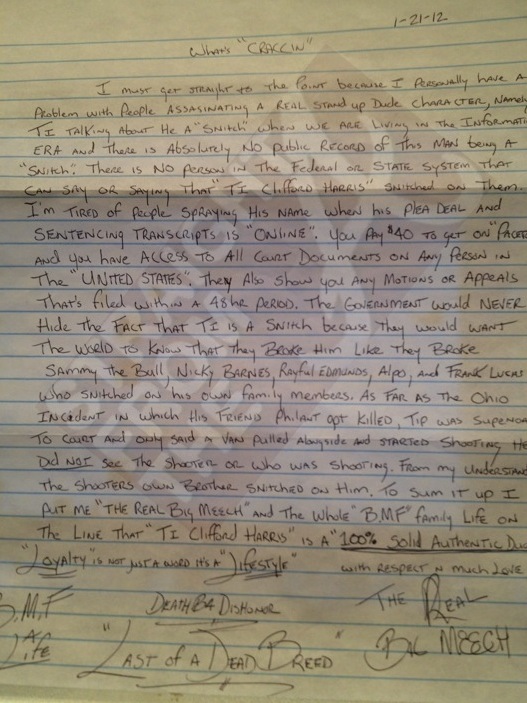 1-21-12
What's "CRACCIN"
I must get straight to the Point because I Personally have A
Problem with People Assasinating A REAL Stand up Dude Character, Namely
TI Talking About He A "Snitch" when we ARE Living in The Informati
ERA and There is Absolutely NO public Record of This MAN being A
"Snitch". There is NO Person in The Federal or STATE System That
CAN SAY OR SAYING That "TI Clifford Harris" Snitched on Them.
I'm TIRED of People SPRAYING His NAME when his PlEA DEAL AND
SENTENCING TRANSCRIPTS IS "ONLINE". You PAY $40 To get on "PACER
And you have Access to All Court Documents on Any Person in
The "UNITED STATES". They Also Show you Any Motions or Appeals
That's filed within A 48 hr PERIOD. The GOVERNMENT would NEVER
Hide The Fact That TI is A Snitch because They would WANT
The World to Know That They BROKE Him Like They BROKE
Sammy the Bull, Nicky Barnes, Rayful Edmunds, Alpo, and Frank Lucas
who snitched on his own family members. As Far As The Ohio
Incident in which His Friend Philant got Killed, Tip was Supenoa
To Court and only said A VAN Pulled Alongside and STARTED Shooting. He
Did NOT see The Shooter or who was Shooting. From my Understand
The Shooters own Brother Snitched on Him. To Sum it up I
Put Me "THE REAL Big Meech" and The Whole "B.M.F" family Life on
The Line That "TI Clifford Harris" is A "100% Solid Authentic Du
"Loyalty" is not just A word it's A "Lifestyle"
with RESPECT N much Love
B.M.F
DEATH B4 DISHONOR
THE REAL
4 Life
"LAST of A DEAD BREED"
BIG MEECH